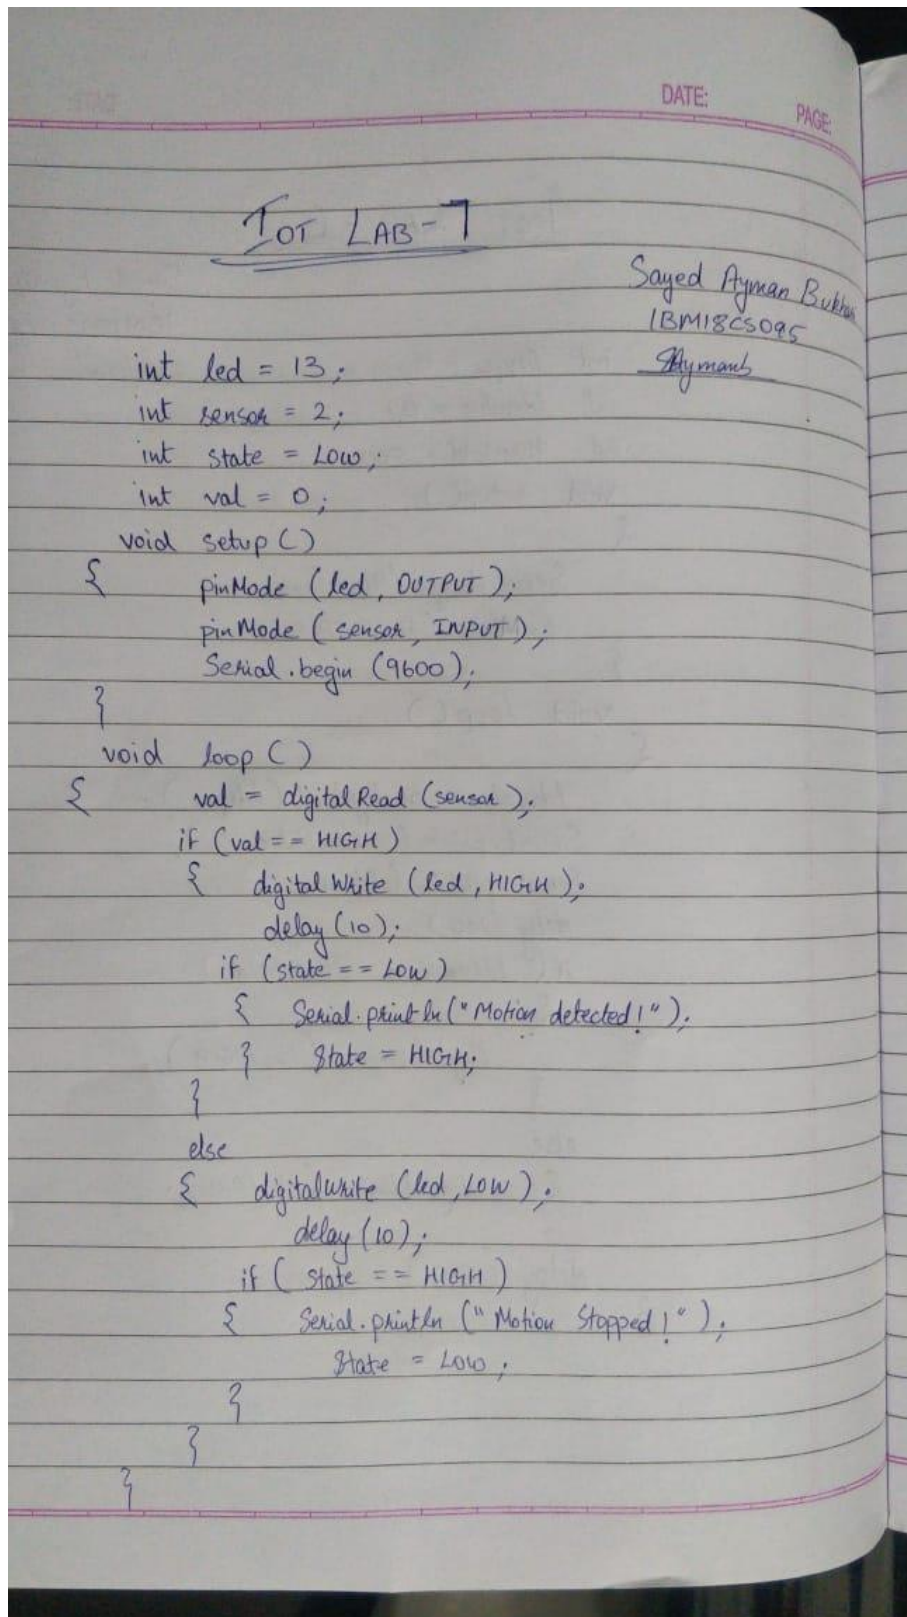 DATE:
PAGE:
IOT LAB-7
Sayed Ayman Bukhari
1BM18CS095
SAymanb
int led = 13;
int sensor = 2;
int state = LOW;
int val = 0;
void setup()
{ pinMode (led, OUTPUT);
pinMode (sensor, INPUT);
Serial.begin (9600);
}
void loop()
{ val = digitalRead (sensor);
if (val == HIGH)
{ digitalWrite (led, HIGH);
delay (10);
if (state == LOW)
{ Serial.println("Motion detected!");
} state = HIGH;
}
else
{ digitalwrite (led, LOW);
delay (10);
if (state == HIGH)
{ Serial.println ("Motion Stopped!");
state = LOW;
}
}
}